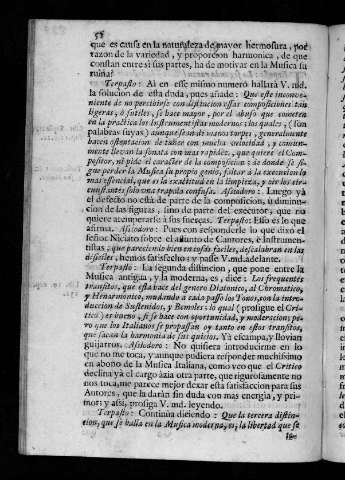 58
que es causa en la naturaleza de mayor hermosura, por
razon de la variedad, y proporcion harmonica, de que
constan entre sì sus partes, ha de motivar en la Musica su
ruina?
Terpasto: Aì en esse mismo numero hallarà V. md.
la solucion de esta duda, pues añade: Que este inconve-
niente de no percibirse con distincion essas composiciones tan
ligeras, ò sutiles, se hace mayor, por el abuso que cometen
en la practica los Instrumentistas modernos: los quales, (son
palabras suyas) aunque sean de manos torpes, generalmente
hacen ostentacion de tañer con mucha velocidad, y comun-
mente llevan la sonata con mas rapidèz, que quiere el Com-
positor, ni pide el caracter de la composicion: de donde se si-
gue perder la Musica su proprio genio, faltar à la execucion lo
mas essencial, que es la exactitud en la limpieza, y oir los cir-
cunstantes solo una trapala confusa. Assiodoro: Luego yà
el defecto no està de parte de la composicion, ù diminu-
cion de las figuras, sino de parte del executor, que no
quiere atemperarse à sus fuerzas. Terpasto: Esso es lo que
afirma. Assiodoro: Pues con responderle lo que dixo el
señor Niciato sobre el assunto de Cantores, è instrumen-
tistas, que pareciendo bien en cosas faciles, descalabran en las
dificiles, hemos satisfecho: y passe V. md. adelante.
Terpasto: La segunda distincion, que pone entre la
Musica antigua, y la moderna, es, dice: Los frequentes
transitos, que esta hace del genero Diatonico, al Chromatico,
y Henarmonico, mudando à cada passo los Tonos, con la intro-
duccion de Sustenidos, y Bemoles: lo qual (prosigue el Cri-
tico) es bueno, si se hace con oportunidad, y moderacion; pe-
ro que los Italianos se propassan oy tanto en estos transitos,
que sacan la harmonia de sus quicios. Yà escampa, y llovian
guijarros. Assiodoro: No quisiera introducirme en lo
que no me toca, y aunque pudiera responder muchissimo
en abono de la Musica Italiana, como veo que el Critico
declina yà el cargo àzia otra parte, que rigurosamente no
nos toca, me parece mejor dexar esta satisfaccion para sus
Autores, que la daràn sin duda con mas energia, y pri-
mor: y assi, prosiga V. md. leyendo.
Terpasto: Continùa diciendo: Que la tercera distin-
cion, que se halla en la Musica moderna, es, la libertad que se